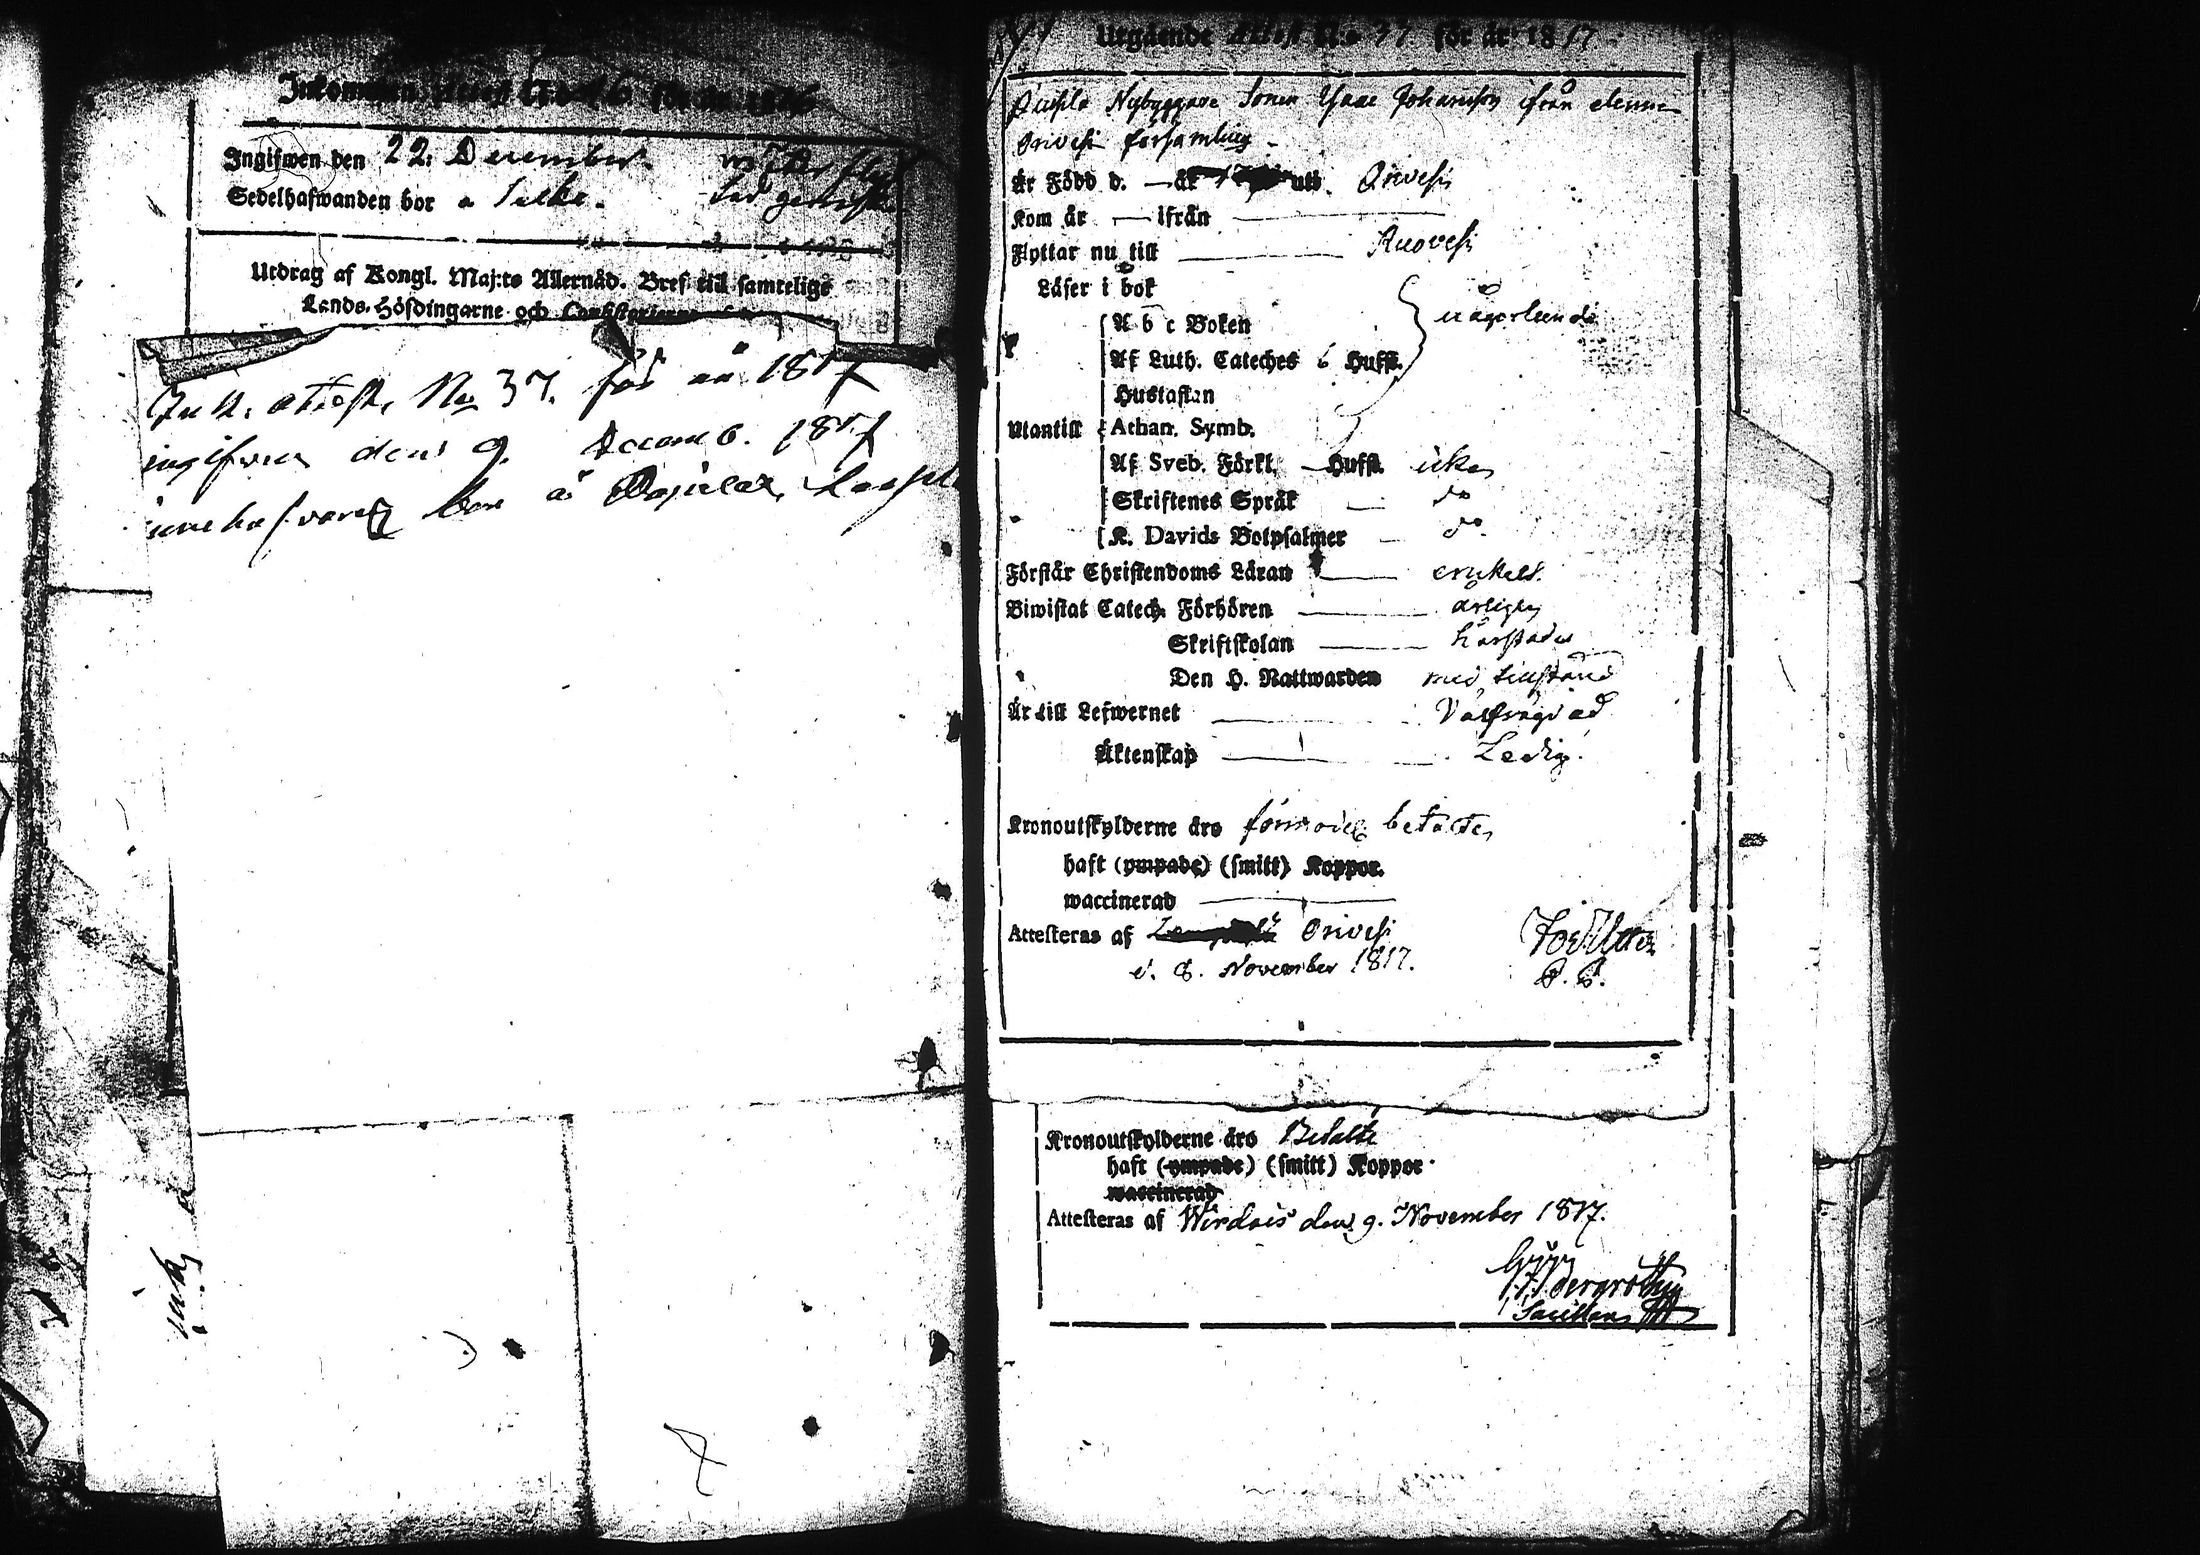 Inkommen Attest N:o 46 för år 1816
Ingifwen den 22. December
Sedelhafwanden bor
Utdrag af Kongl. Maj:ts Allernåd. Bref till samtelige
Lands-Höfdingarne och Consistorierne
Ink. attest. No 37. för år 1817
ingifven den 9. Decemb. 1817
innehafvaren bor å
Utgående Attest N:o 37 för år 1817
Nybyggare Sonen Isaac Johansson ifrån
Orivesi församling
Är Född d. — år uti Orivesi
Kom år — ifrån —
Flyttar nu till — Ruovesi
Läser i bok
A b c Boken
någorlunda
Af Luth. Cateches 6 Hufst.
Hustaflan
Utantill Athan. Symb.
Af Sveb. Förkl. — Hufst. icke
Skriftenes Språk — do
K. Davids Botpsalmer — do
Förstår Christendoms Läran — enkelt.
Biwistat Catech. Förhören — årligen
Skriftskolan — härstädes
Den H. Nattwarden med tillstånd
Är till Lefwernet — Välfrägdad
Äktenskap — Ledig.
Kronoutskylderne äro förmodel. betalte
haft (ympade) (smitt) Koppor.
waccinerad —
Attesteras af Orivesi
d. 8. November 1817.
P. P.
Kronoutskylderne äro Betalte
haft (ympade) (smitt) Koppor.
waccinerad
Attesteras af Wirdois den 9. November 1817.
Bergroth